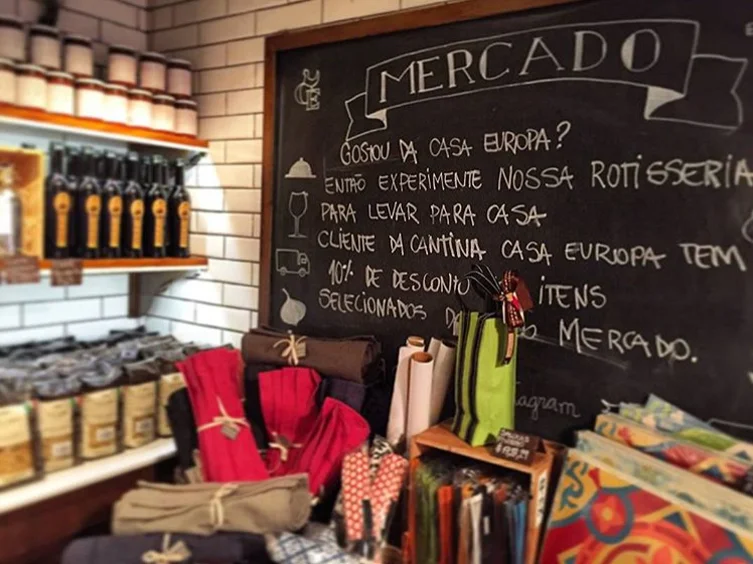 MERCADO
GOSTOU DA CASA EUROPA?
ENTÃO EXPERIMENTE NOSSA ROTISSERIA
PARA LEVAR PARA CASA
CLIENTE DA CANTINA CASA EUROPA TEM
10% DE DESCONTO ITENS
SELECIONADOS MERCADO.